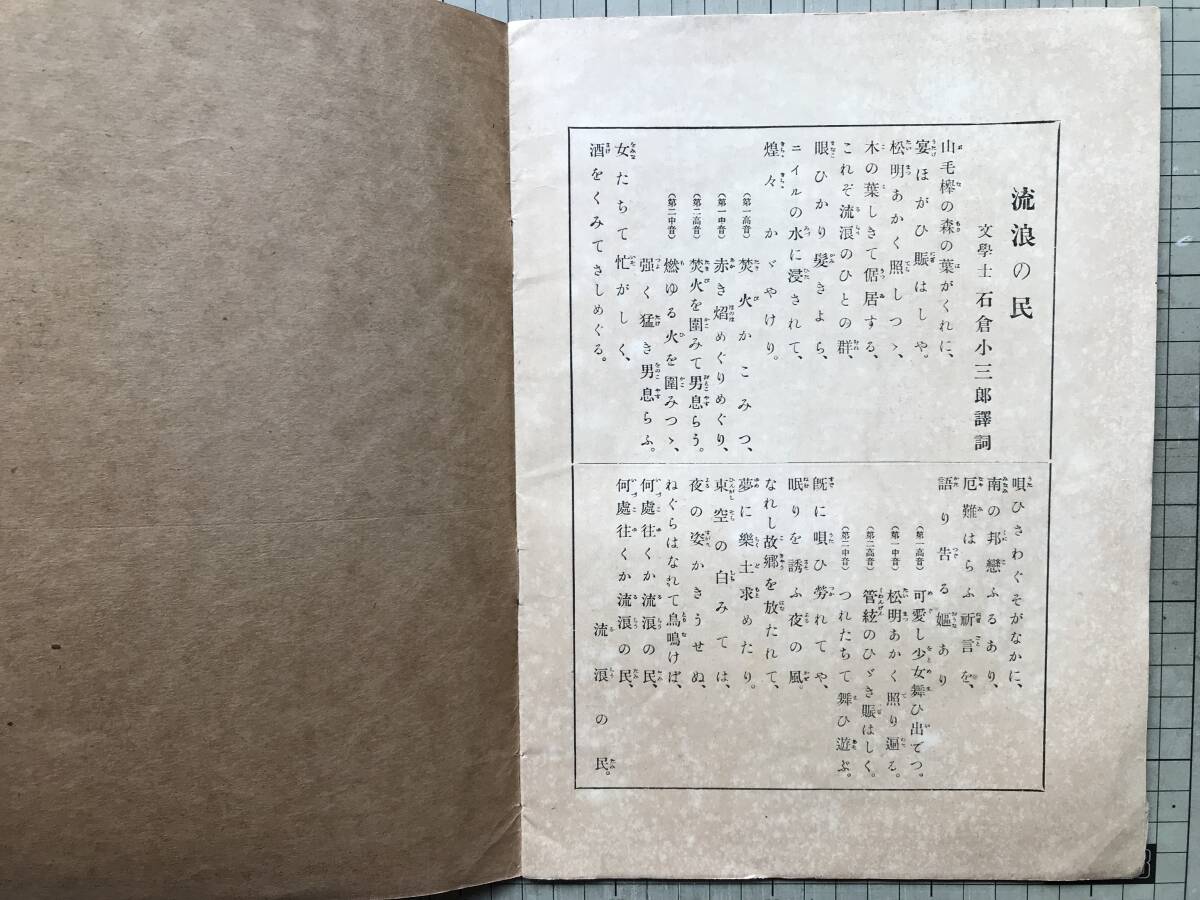 流浪の民
文學士 石倉小三郎譯詞
山毛欅の森の葉がくれに、
宴ほがひ賑はしや。
松明あかく照しつゝ、
木の葉しきて倨居する、
これぞ流浪のひとの群、
眼ひかり髪きよら、
ニイルの水に浸されて、
煌々かゞやけり。
(第一高音) 焚火かこみつ、
(第一中音) 赤き焰めぐりめぐり、
(第二高音) 焚火を圍みて男息らう。
(第二中音) 燃ゆる火を圍みつゝ、
强く猛き男息らふ。
女たちて忙がしく、
酒をくみてさしめぐる。
唄ひさわぐそがなかに、
南の邦戀ふるあり、
厄難はらふ祈言を、
語り告る嫗あり
(第一高音) 可愛し少女舞ひ出でつ。
(第一中音) 松明あかく照り遍る。
(第二高音) 管絃のひゞき賑はしく。
(第二中音) つれたちて舞ひ遊ぶ。
旣に唄ひ勞れてや、
眠りを誘ふ夜の風。
なれし故鄕を放たれて、
夢に樂土求めたり。
東空の白みては、
夜の姿かきうせぬ、
ねぐらはなれて鳥鳴けば、
何處往くか流浪の民、
何處往くか流浪の民、
流浪の民。